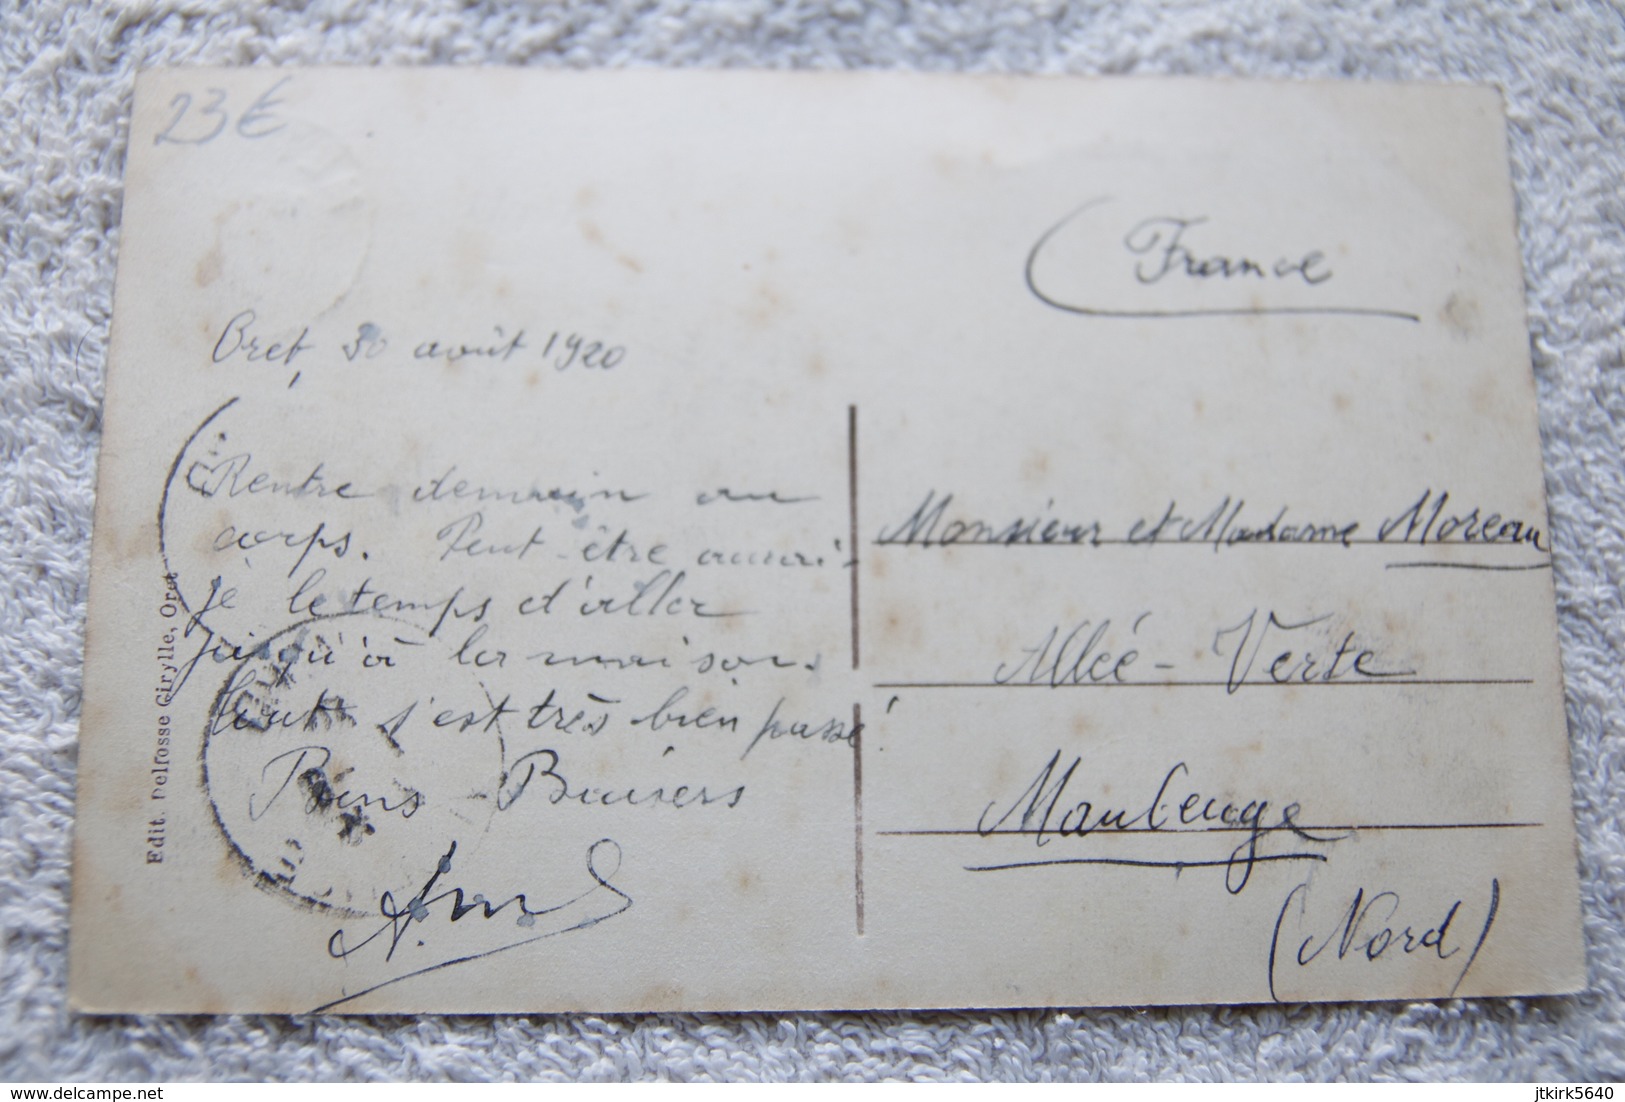 23€
Oret, 30 août 1920
Rentre demain au
corps. Peut-être aurai-
je le temps d'aller
jusqu'à la maison.
Tout s'est très bien passé !
Bons Baisers
Edit. Delfosse Cirylle, Oret
(France
Monsieur et Madame Moreau
Allée-Verte
Maubeuge
(Nord)
www.delcampe.net
jtkirk5640